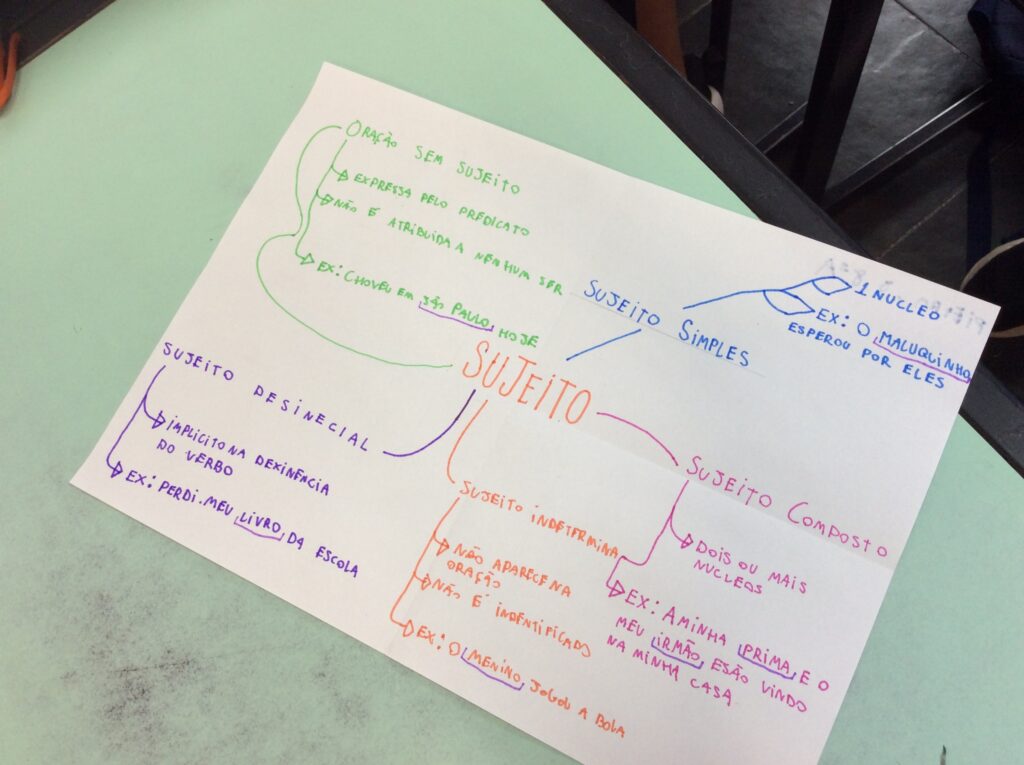 ORAÇÃO SEM SUJEITO
EXPRESSA PELO PREDICATO
NÃO É ATRIBUIDA A NENHUM SER
EX: CHOVEU EM SÃO PAULO HOJE
SUJEITO SIMPLES
1 NUCLEO
EX: O MALUQUINHO
ESPEROU POR ELES
SUJEITO
SUJEITO DESINECIAL
IMPLICITO NA DEXINÊNCIA
DO VERBO
EX: PERDI.MEU LIVRO DA ESCOLA
SUJEITO INDETERMINA
NÃO APARECE NA
ORAÇÃO
NÃO É INDENTIFICADO
EX: O MENINO JOGOU A BOLA
SUJEITO COMPOSTO
DOIS OU MAIS
NUCLEOS
EX: A MINHA PRIMA E O
MEU IRMÃO ESÃO VINDO
NA MINHA CASA